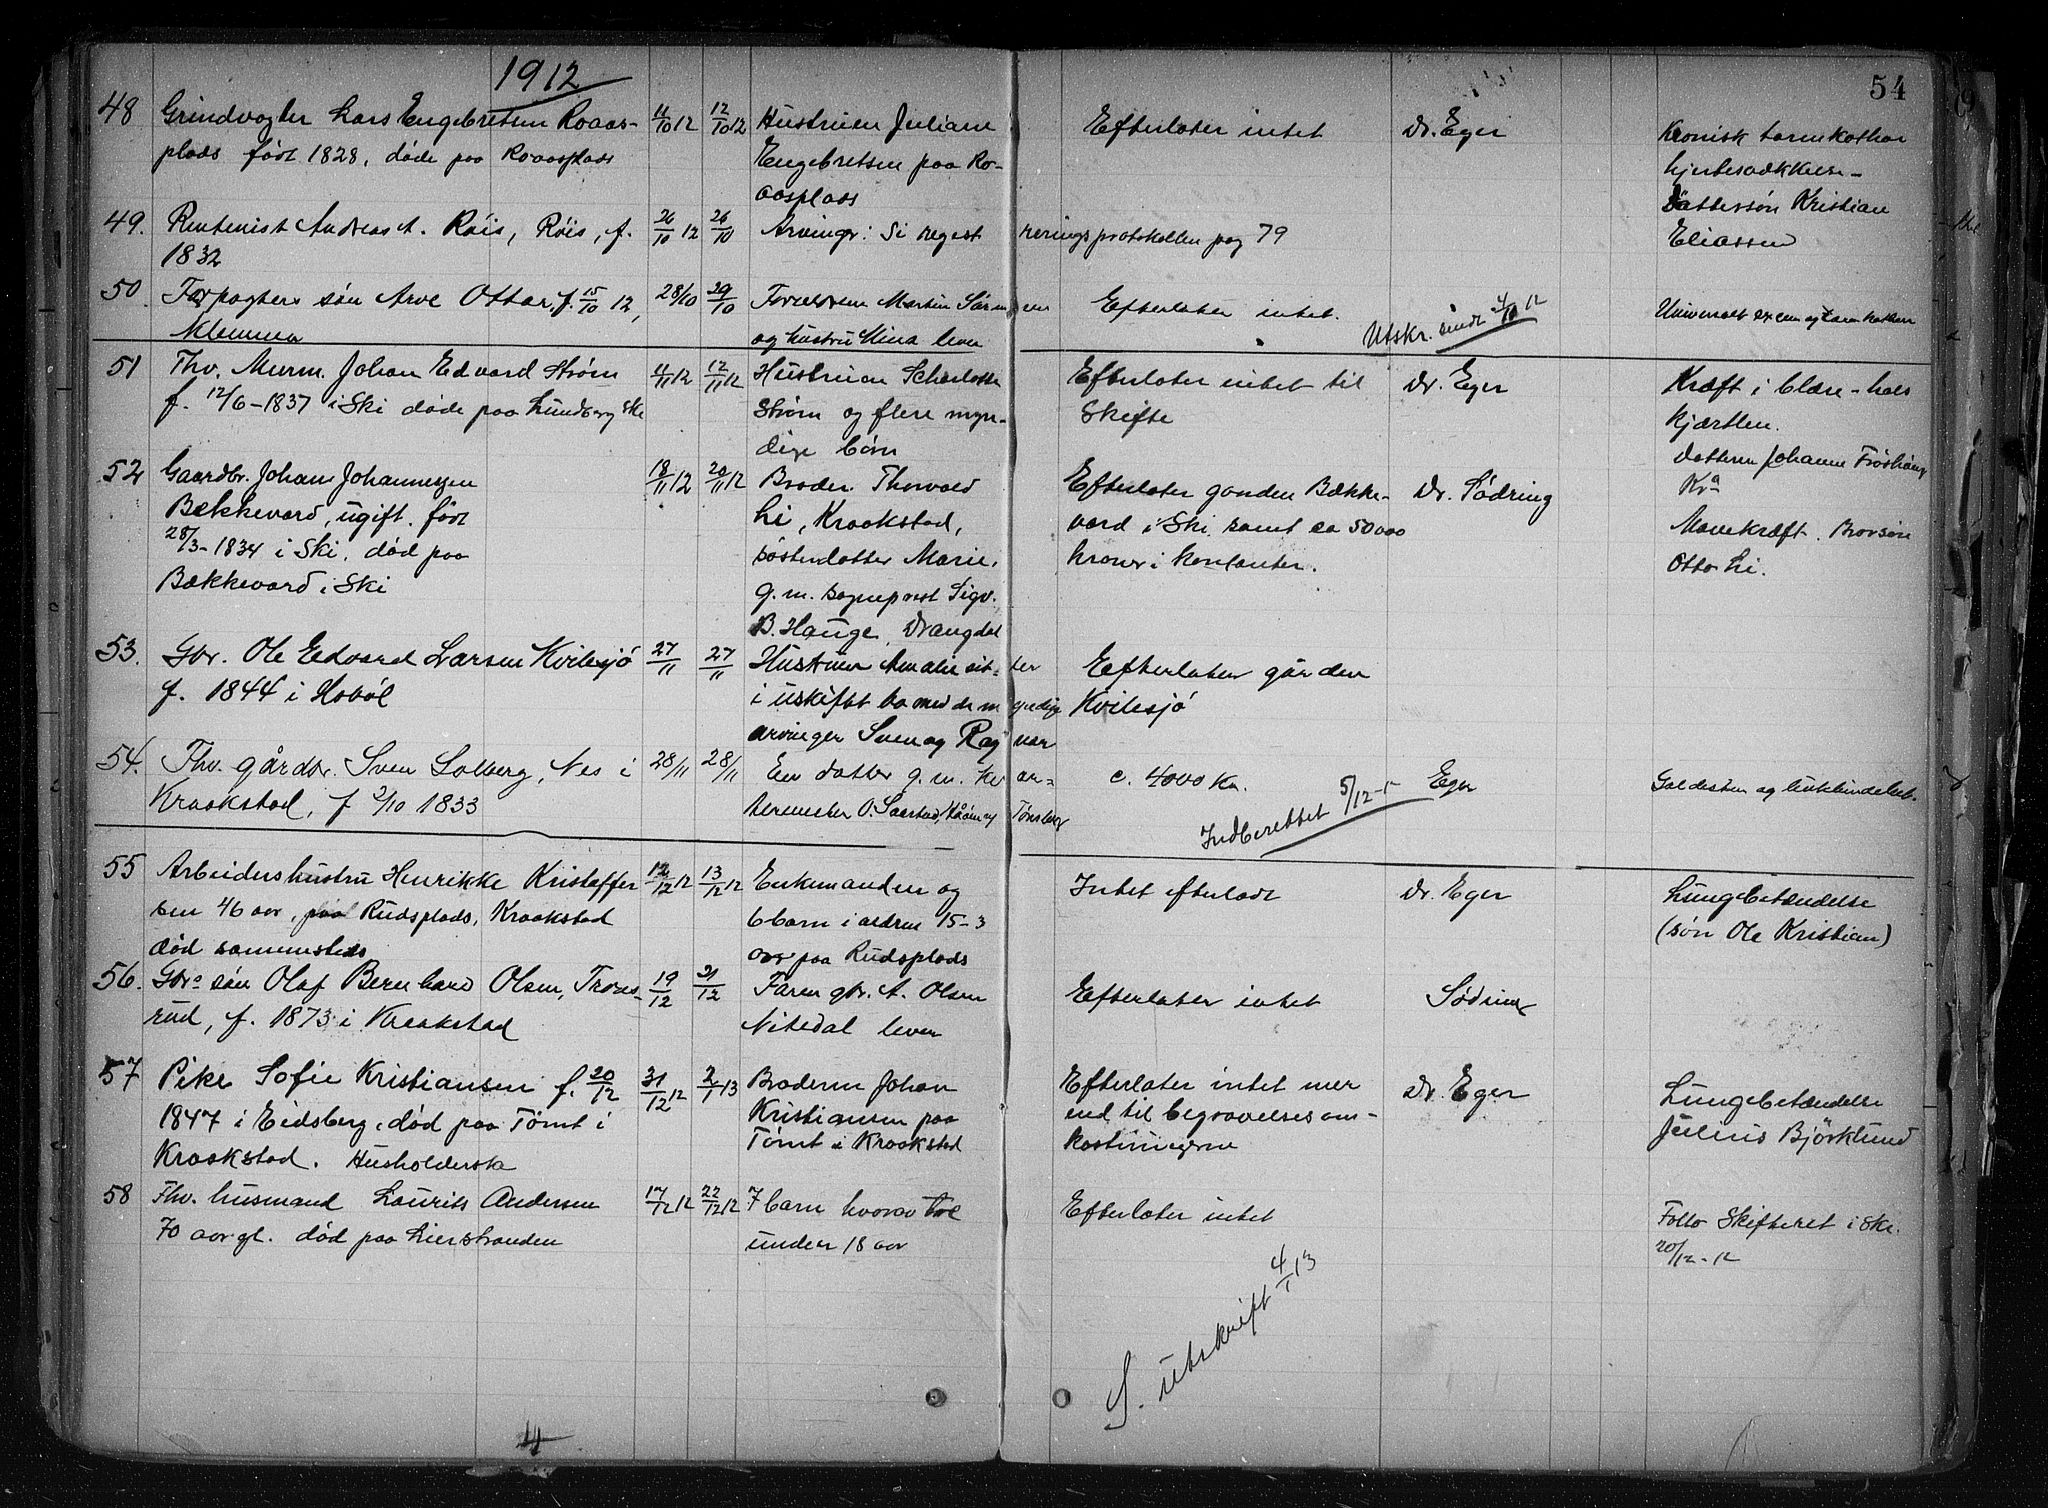 1912
54
48 Grindvogter Lars Engebretsen Roaas- 11/10 12 12/10 12 Hustruen Juliane Efterlater intet Dr. Eger Kronisk tarmkathar
plads født 1828, døde paa Roaasplads Engebretsen paa Ro- hjertesvækkelse -
aasplads Dattersøn Kristian
49. Rentenist Andreas A. Røis, Røis, f. 26/10 12 26/10 Arvinger: Si regest reringsprotokollen pag 79 Eliassen
1832
50 Forpagters søn Arve Ottar, f. 15/10 12, 28/10 29/10 Forældrene Martin Sørensen Efterlater intet. Universalt exem og tarmkathar
Klemmen og hustru Mina lever Utskr. sendt 4/11 12
51 Fhv. Murm. Johan Edvard Strøm 11/11 12 12/11 12 Hustruen Scharlotte Efterlater intet til Dr. Eger Kræft i blære-hals
f. 12/6-1837 i Ski døde paa Lundberg Ski Strøm og flere myn- Skifte kjærtlen.
dige børn Datteren Johanne Frøshaug
52 Gaardbr. Johan Johannessen 18/11 12 20/11 12 Broder Thorvald Efterlater gaarden Bække- Dr. Sødring Kra
Bækkevard, ugift. født Li, Kraakstad, vard i Ski samt ca 50000 Mavekræft. Brorsøn
28/3-1834 i Ski, død paa søsterdatter Marie, kroner i kontanter. Otto Li.
Bækkevard i Ski g. m. sogneprest Sigv.
B. Hauge, Drangdal
53. Gbr. Ole Edvard Larsen Kvitesjø 27/11 27/11 Hustruen Amalie sitter Efterlater gården
f. 1844 i Hobøl i uskiftet bo med de myndige Kvitesjø
arvinger Sven og Ragnar
54. Fhv. gårdbr. Sven Solberg, Nes i 28/11 28/11 En datter g. m. kvar- c. 4000 Kr. Eger Galdesten og
Kraakstad, f 2/10 1833 termester O. Tønsberg Indberettet 5/12-
55 Arbeiderhustru Henrikke Kristoffer 12/12 12 13/12 12 Enkemanden og Intet efterladt Dr. Eger Lungebetændelse
sen 46 aar, paa Rudsplads, Kraakstad 6 barn i aldren 15-3 (søn Ole Kristian)
død sammesteds aar paa Rudsplads
56. Gbr. søn Olaf Bernhard Olsen, Trones- 19/12 21/12 Faren gbr. A. Olsen Efterlater intet Sødring
rud, f. 1873 i Kraakstad Nitedal lever
57 Pike Sofie Kristiansen f. 20/12 31/12 12 2/1 13 Broderen Johan Efterlater intet mer Dr. Eger Lungebetændelse
1847 i Eidsberg, død paa Tømt i Kristiansen paa end til begravelsesom- Julius Bjørklund
Kraakstad. Husholderska Tømt i Kraakstad kostningerne
58 Fhv. husmand Laurits Andersen 17/12 12 22/12 12 7 barn hvorav tre Efterlater intet Follo Skifteret i Ski.
70 aar gl. død paa Lierstranden under 18 aar 20/12-12
S. utskrift 4/1 13